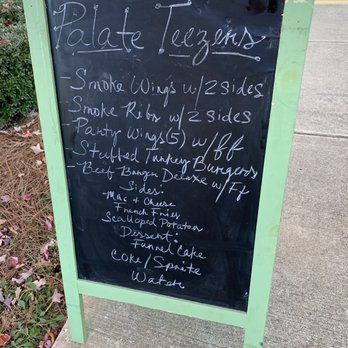 Palate Teezens
- Smoke Wings w/2 sides
- Smoke Ribs w/2 sides
- Party Wings(5) w/ff
- Stuffed Turkey Burgers
- Beef Burger Deluxe w/Ff
Sides:
- Mac + Cheese
French Fries
Scalloped Potatoes
Dessert:
Funnel Cake
Coke/Sprite
Water